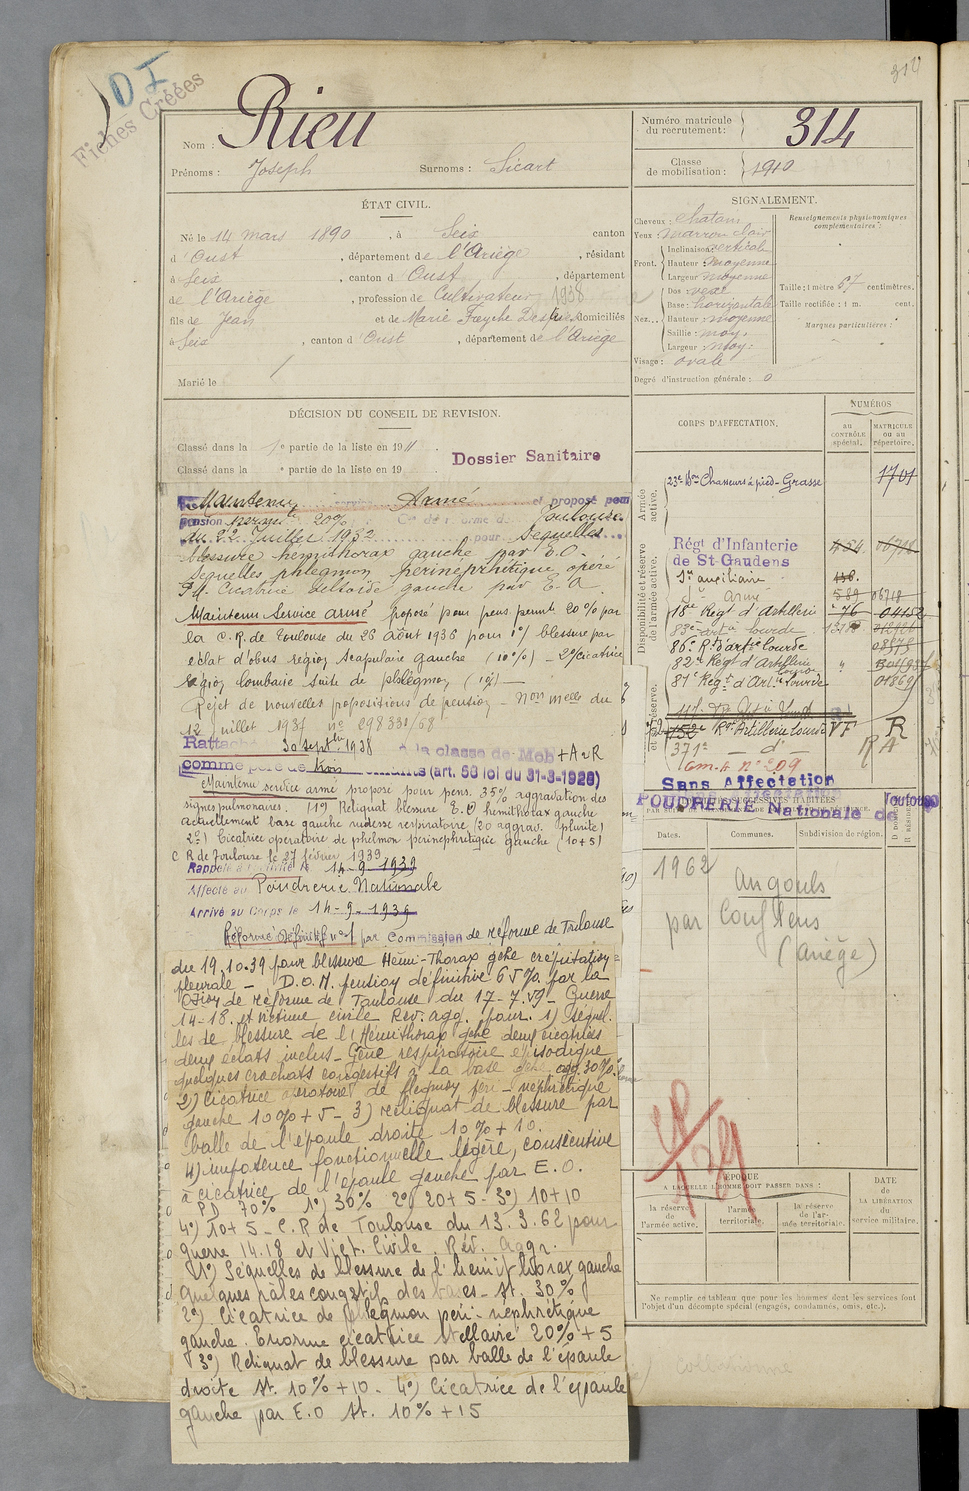 314
D I
Fiches Créées
Nom : Rieu
Prénoms : Joseph Surnoms : Sicart
Numéro matricule du recrutement : 314
Classe de mobilisation : 1910
ÉTAT CIVIL.
Né le 14 mars 1890, à Seix canton
d'Oust, département de l'Ariège, résidant
à Seix, canton d'Oust, département
de l'Ariège, profession de Cultivateur 1938
fils de Jean et de Marie domiciliés
à Seix, canton d'Oust, département de l'Ariège
Marié le
SIGNALEMENT.
Cheveux : chatain
Yeux : marron clair
Front. Inclinaison : verticale
Hauteur : moyenne
Largeur : moyenne
Nez. Dos : vexe
Base : horizontale
Hauteur : moyenne
Saillie : moy.
Largeur : moy.
Visage : ovale
Degré d'instruction générale : 0
Renseignements physionomiques complémentaires :
Taille : 1 mètre 67 centimètres.
Taille rectifiée : 1 m. cent.
Marques particulières :
DÉCISION DU CONSEIL DE REVISION.
Classé dans la 1e partie de la liste en 1911.
Classé dans la e partie de la liste en 19 .
Dossier Sanitaire
Maintenu service Armé et proposé pour
pension perm. 20% Con de réforme de Toulouse
du 22 Juillet 1932 pour Sequelles
blessure hemithorax gauche par E.O.
Sequelles phlegmon perinephritique opéré
Cicatrice deltoïde gauche par E.O.
Maintenu Service armé proposé pour pens. permte 20% par
la C.R. de Toulouse du 26 Août 1936 pour 1°) blessure par
éclat d'obus région Scapulaire gauche (10%) - 2° Cicatrice
région lombaire suite de phlégmon
Rejet de nouvelles propositions de pension - Non melle du
12 juillet 1937
Rattaché 30 septbre 1938 à la classe de Mob
comme père de trois enfants (art. 58 loi du 31-3-1928)
Maintenu service armé proposé pour pens. 35% aggravation des
signes pulmonaires. 1°) Reliquat blessure E.O hemithorax gauche
actuellement base gauche rudesse respiratoire (20 aggrav. plurite)
2°) Cicatrice operatoire de phelmon perinephretique gauche (10+5)
C R de Toulouse le 27 février 1939
Rappelé à l'activité le 14-9-1939
Affecté au Poudrerie Nationale
Arrivé au Corps le 14-9-1939
Réformé Définitif n°1 par Commission de réforme de Toulouse
du 19.10.39 pour blessure Hémi-Thorax gche crépitation
pleurale - D.O.M. pension définitive 65% par la
Csion de réforme de Toulouse du 17-7-59 - Guerre
14-18. et victime civile Rev. agg. pour. 1) séquel-
les de blessure de l'Hémithorax gche deux cicatrices
deux éclats inclus - Gêne respiratoire épisodique
quelques crachats congestifs à la base gche agg. 30%
2) Cicatrice opératoire de flegmon péri-néphrétique
gauche 10% + 5 - 3) reliquat de blessure par
balle de l'épaule droite 10% + 10.
4) impotence fonctionnelle légère, consécutive
à cicatrice de l'épaule gauche par E.O.
PD 70% 1°) 30% 2°) 20+5 - 3°) 10+10
4°) 10+5 - C.R de Toulouse du 13.3.62 pour
guerre 14.18 et Vict. Civile. Rév. Aggr.
1°) Séquelles de blessure de l'hémithorax gauche
quelques râles congestifs des bases - St. 30%
2°) Cicatrice de phlegmon péri-nephrétique
gauche. Enorme cicatrice étellaire 20% + 5
3°) Reliquat de blessure par balle de l'épaule
droite St. 10% + 10 - 4°) Cicatrice de l'épaule
gauche par E.O St. 10% + 15
CORPS D'AFFECTATION.
NUMÉROS
AU CONTRÔLE spécial.
MATRICULE OU AU répertoire.
Armée active.
23e Bon Chasseurs à pied - Grasse 1701
Disponibilité et réserve de l'armée active.
Régt d'Infanterie
de St-Gaudens
Sce auxiliaire
Sce Armé 589 06718
18e Regt d'Artillerie 76 04152
83e artie lourde
86e Rt d'artie lourde
82e Regt d'Artillerie lourde
81e Regt d'Art. Lourde
152e Ron Artillerie lourde VF R
371e - d° - RA
Sans Affectation
POUDRERIE Nationale de Toulouse
Dates. Communes. Subdivision de région.
1962 Angouls
par Couflens
(Ariège)
ÉPOQUE
A LAQUELLE L'HOMME DOIT PASSER DANS :
la réserve de l'armée active.
l'armée territoriale.
la réserve de l'armée territoriale.
DATE DE LA LIBÉRATION du service militaire.
Ne remplir ce tableau que pour les hommes dont les services font
l'objet d'un décompte spécial (engagés, condamnés, omis, etc.).